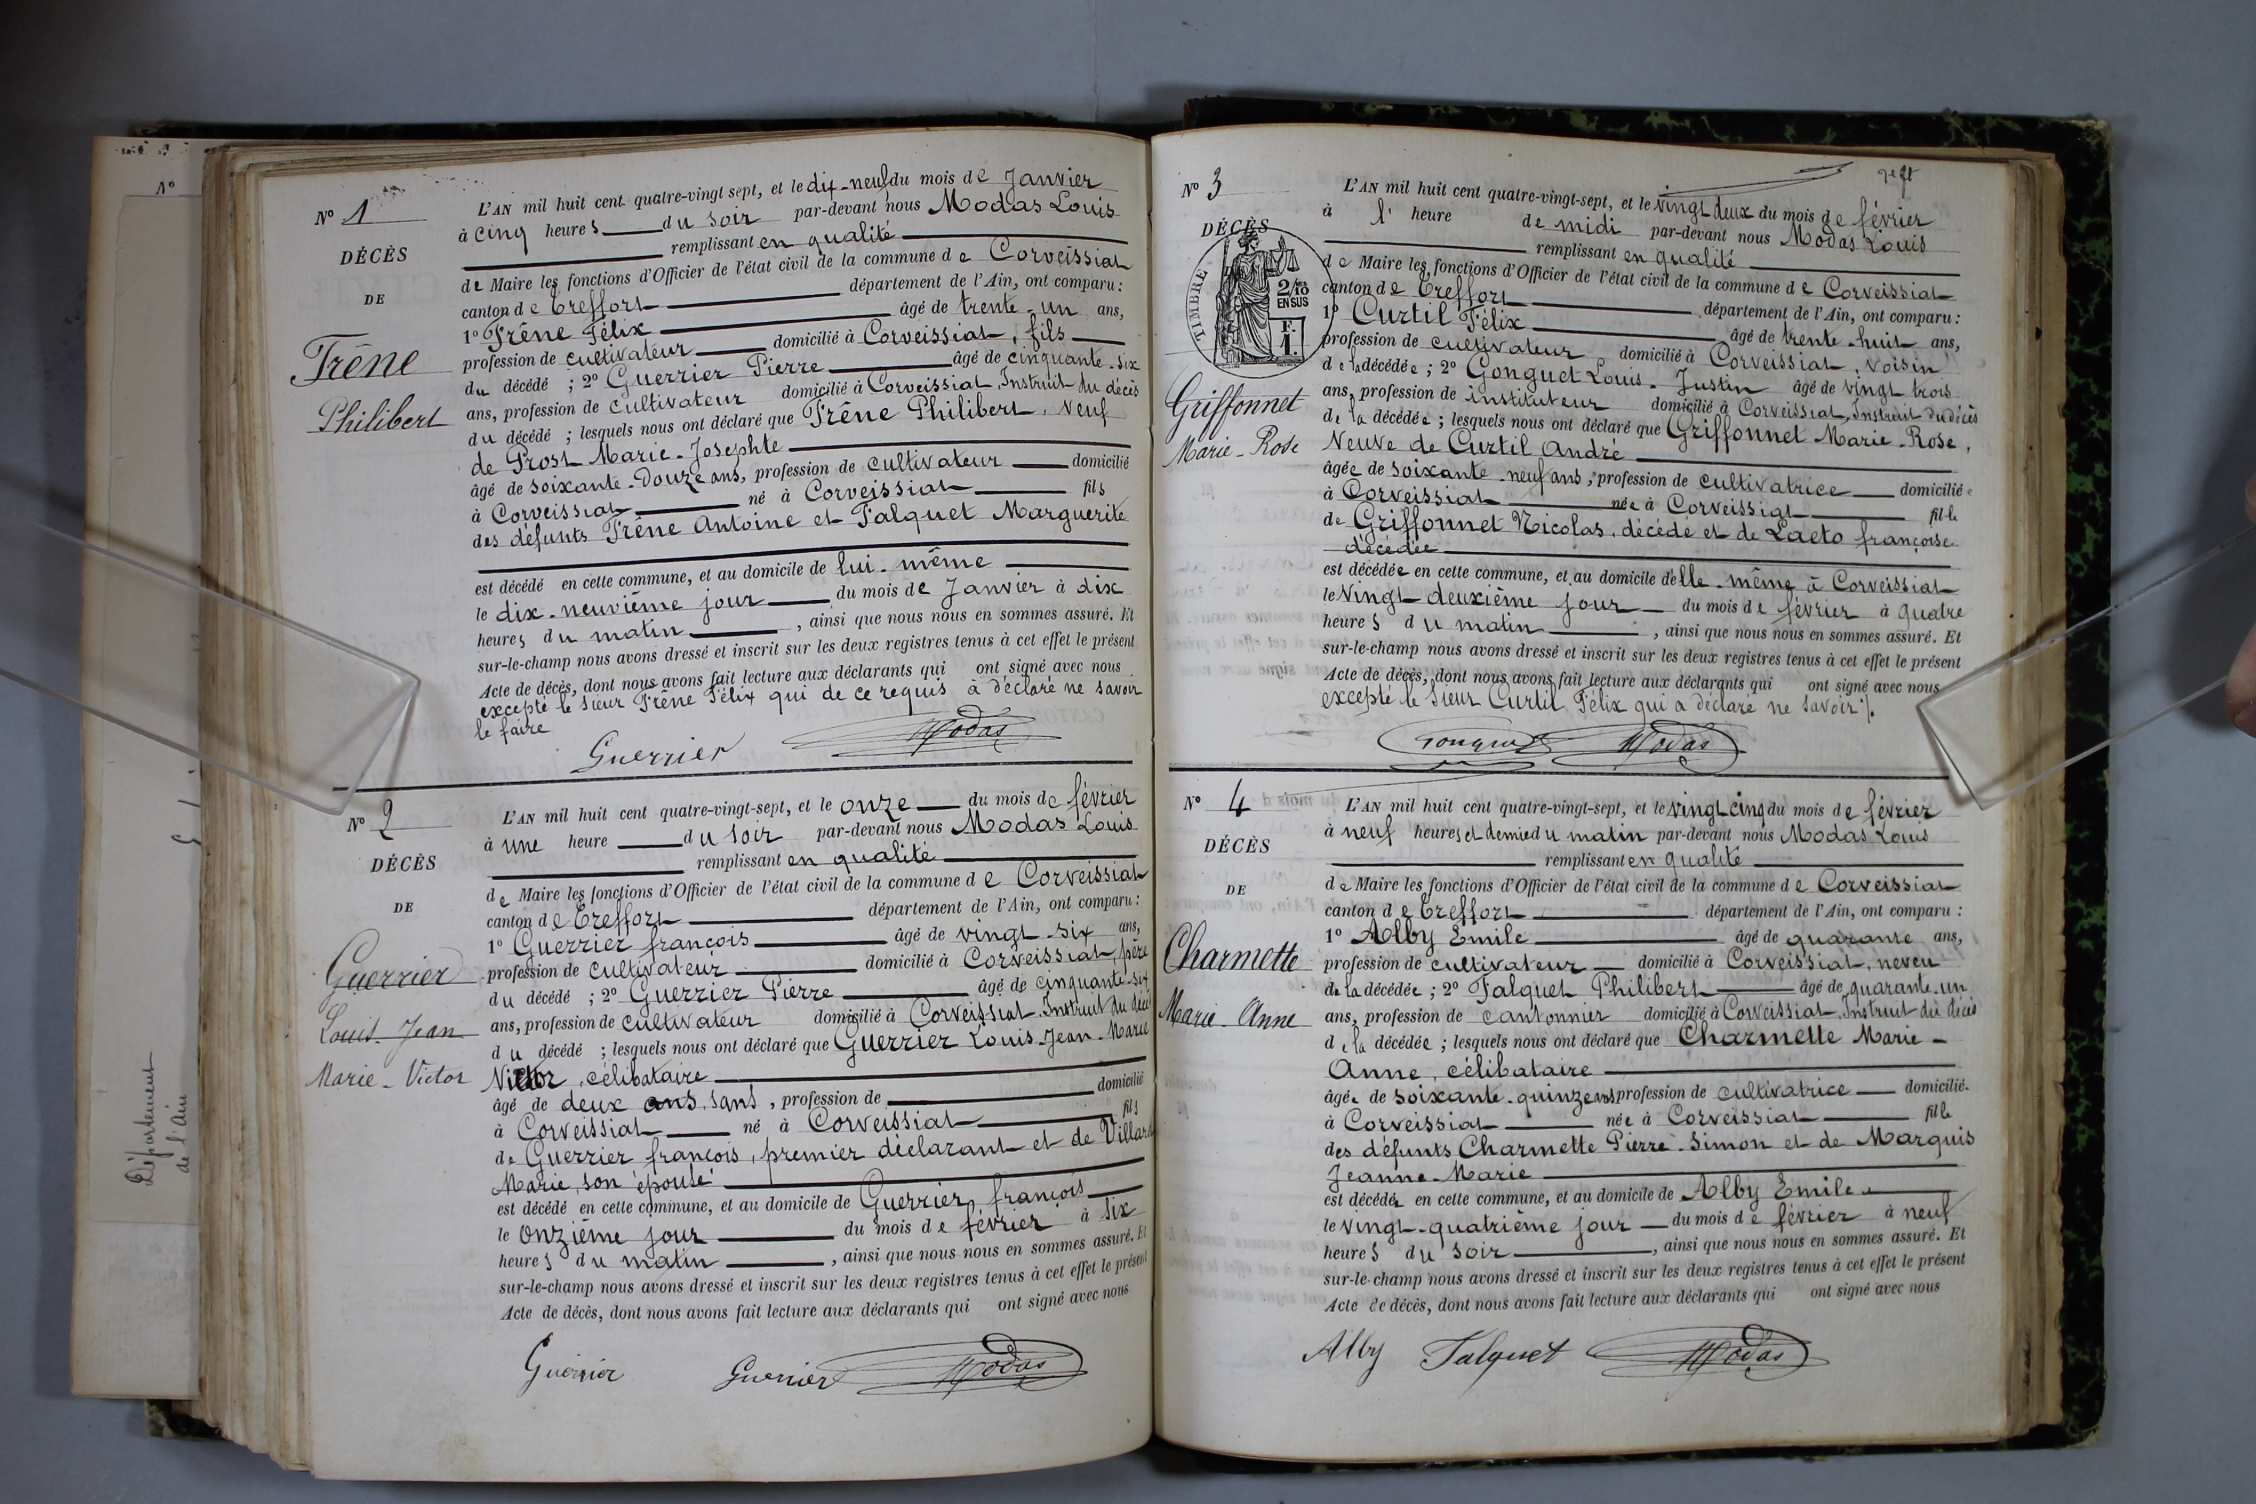 Nº 1
DÉCÈS
DE
Frêne
Philibert
L'AN mil huit cent quatre-vingt sept, et le dix-neuf du mois de Janvier
à cinq heures du soir par-devant nous Modas Louis
remplissant en qualité
de Maire les fonctions d'Officier de l'état civil de la commune de Corveissiat
canton de Treffort département de l'Ain, ont comparu :
1º Frêne Félix âgé de trente-un ans,
profession de cultivateur domicilié à Corveissiat, fils
du décédé ; 2º Guerrier Pierre âgé de cinquante-six
ans, profession de cultivateur domicilié à Corveissiat, Instruit du décès
du décédé ; lesquels nous ont déclaré que Frêne Philibert, veuf
de Prost Marie-Josephte
âgé de soixante-douze ans, profession de cultivateur domicilié
à Corveissiat né à Corveissiat fils
des défunts Frêne Antoine et Falquet Marguerite
est décédé en cette commune, et au domicile de lui-même
le dix-neuvième jour du mois de Janvier à dix
heures du matin, ainsi que nous nous en sommes assuré. Et
sur-le-champ nous avons dressé et inscrit sur les deux registres tenus à cet effet le présent
Acte de décès, dont nous avons fait lecture aux déclarants qui ont signé avec nous
excepté le sieur Frêne Félix qui de ce requis à déclaré ne savoir
le faire
Guerrier Modas
Nº 2
DÉCÈS
DE
Guerrier
Louis-Jean
Marie-Victor
L'AN mil huit cent quatre-vingt-sept, et le onze du mois de février
à une heure du soir par-devant nous Modas Louis
remplissant en qualité
de Maire les fonctions d'Officier de l'état civil de la commune de Corveissiat
canton de Treffort département de l'Ain, ont comparu :
1º Guerrier françois âgé de vingt-six ans,
profession de cultivateur domicilié à Corveissiat, père
du décédé ; 2º Guerrier Pierre âgé de cinquante-six
ans, profession de cultivateur domicilié à Corveissiat, Instruit du décè
du décédé ; lesquels nous ont déclaré que Guerrier Louis-Jean-Marie
Victor, célibataire
âgé de deux ans, sans, profession de domicilié
à Corveissiat né à Corveissiat fils
de Guerrier françois, premier déclarant et de Villard
Marie, son épouse
est décédé en cette commune, et au domicile de Guerrier françois
le onzième jour du mois de février à six
heures du matin, ainsi que nous nous en sommes assuré. Et
sur-le-champ nous avons dressé et inscrit sur les deux registres tenus à cet effet le présent
Acte de décès, dont nous avons fait lecture aux déclarants qui ont signé avec nous
Guerrier Guerrier Modas
Département
de l'Ain
Nº 3
DÉCÈS
TIMBRE
2/10
EN SUS
F.
1.
Griffonnet
Marie-Rose
L'AN mil huit cent quatre-vingt-sept, et le vingt deux du mois de février
à 1' heure de midi par-devant nous Modas Louis
remplissant en qualité
de Maire les fonctions d'Officier de l'état civil de la commune de Corveissiat
canton de Treffort département de l'Ain, ont comparu :
1º Curtil Félix âgé de trente-huit ans,
profession de cultivateur domicilié à Corveissiat, voisin
de la décédée ; 2º Gonguet Louis-Justin âgé de vingt trois
ans, profession de instituteur domicilié à Corveissiat, Instruit du décès
de la décédée ; lesquels nous ont déclaré que Griffonnet Marie-Rose,
Veuve de Curtil André
âgée de soixante-neuf ans, profession de cultivatrice domiciliée
à Corveissiat née à Corveissiat fille
de Griffonnet Nicolas, décédé et de Lacto françoise
décédée
est décédée en cette commune, et au domicile d'elle-même à Corveissiat
le vingt-deuxième jour du mois de février à quatre
heures du matin, ainsi que nous nous en sommes assuré. Et
sur-le-champ nous avons dressé et inscrit sur les deux registres tenus à cet effet le présent
Acte de décès, dont nous avons fait lecture aux déclarants qui ont signé avec nous
excepté le sieur Curtil Félix qui a déclaré ne savoir
Gonguet Modas
Nº 4
DÉCÈS
DE
Charmette
Marie-Anne
L'AN mil huit cent quatre-vingt-sept, et le vingt cinq du mois de février
à neuf heures et demie du matin par-devant nous Modas Louis
remplissant en qualité
de Maire les fonctions d'Officier de l'état civil de la commune de Corveissiat
canton de Treffort département de l'Ain, ont comparu :
1º Alby Emile âgé de quarante ans,
profession de cultivateur domicilié à Corveissiat, neveu
de la décédée ; 2º Falquet Philibert âgé de quarante-un
ans, profession de cantonnier domicilié à Corveissiat, Instruit du décès
de la décédée ; lesquels nous ont déclaré que Charmette Marie-
Anne, célibataire
âgée de soixante-quinze ans profession de cultivatrice domiciliée
à Corveissiat née à Corveissiat fille
des défunts Charmette Pierre-Simon et de Marquis
Jeanne-Marie
est décédée en cette commune, et au domicile de Alby Emile
le vingt-quatrième jour du mois de février à neuf
heures du soir, ainsi que nous nous en sommes assuré. Et
sur-le-champ nous avons dressé et inscrit sur les deux registres tenus à cet effet le présent
Acte de décès, dont nous avons fait lecture aux déclarants qui ont signé avec nous
Alby Falquet Modas